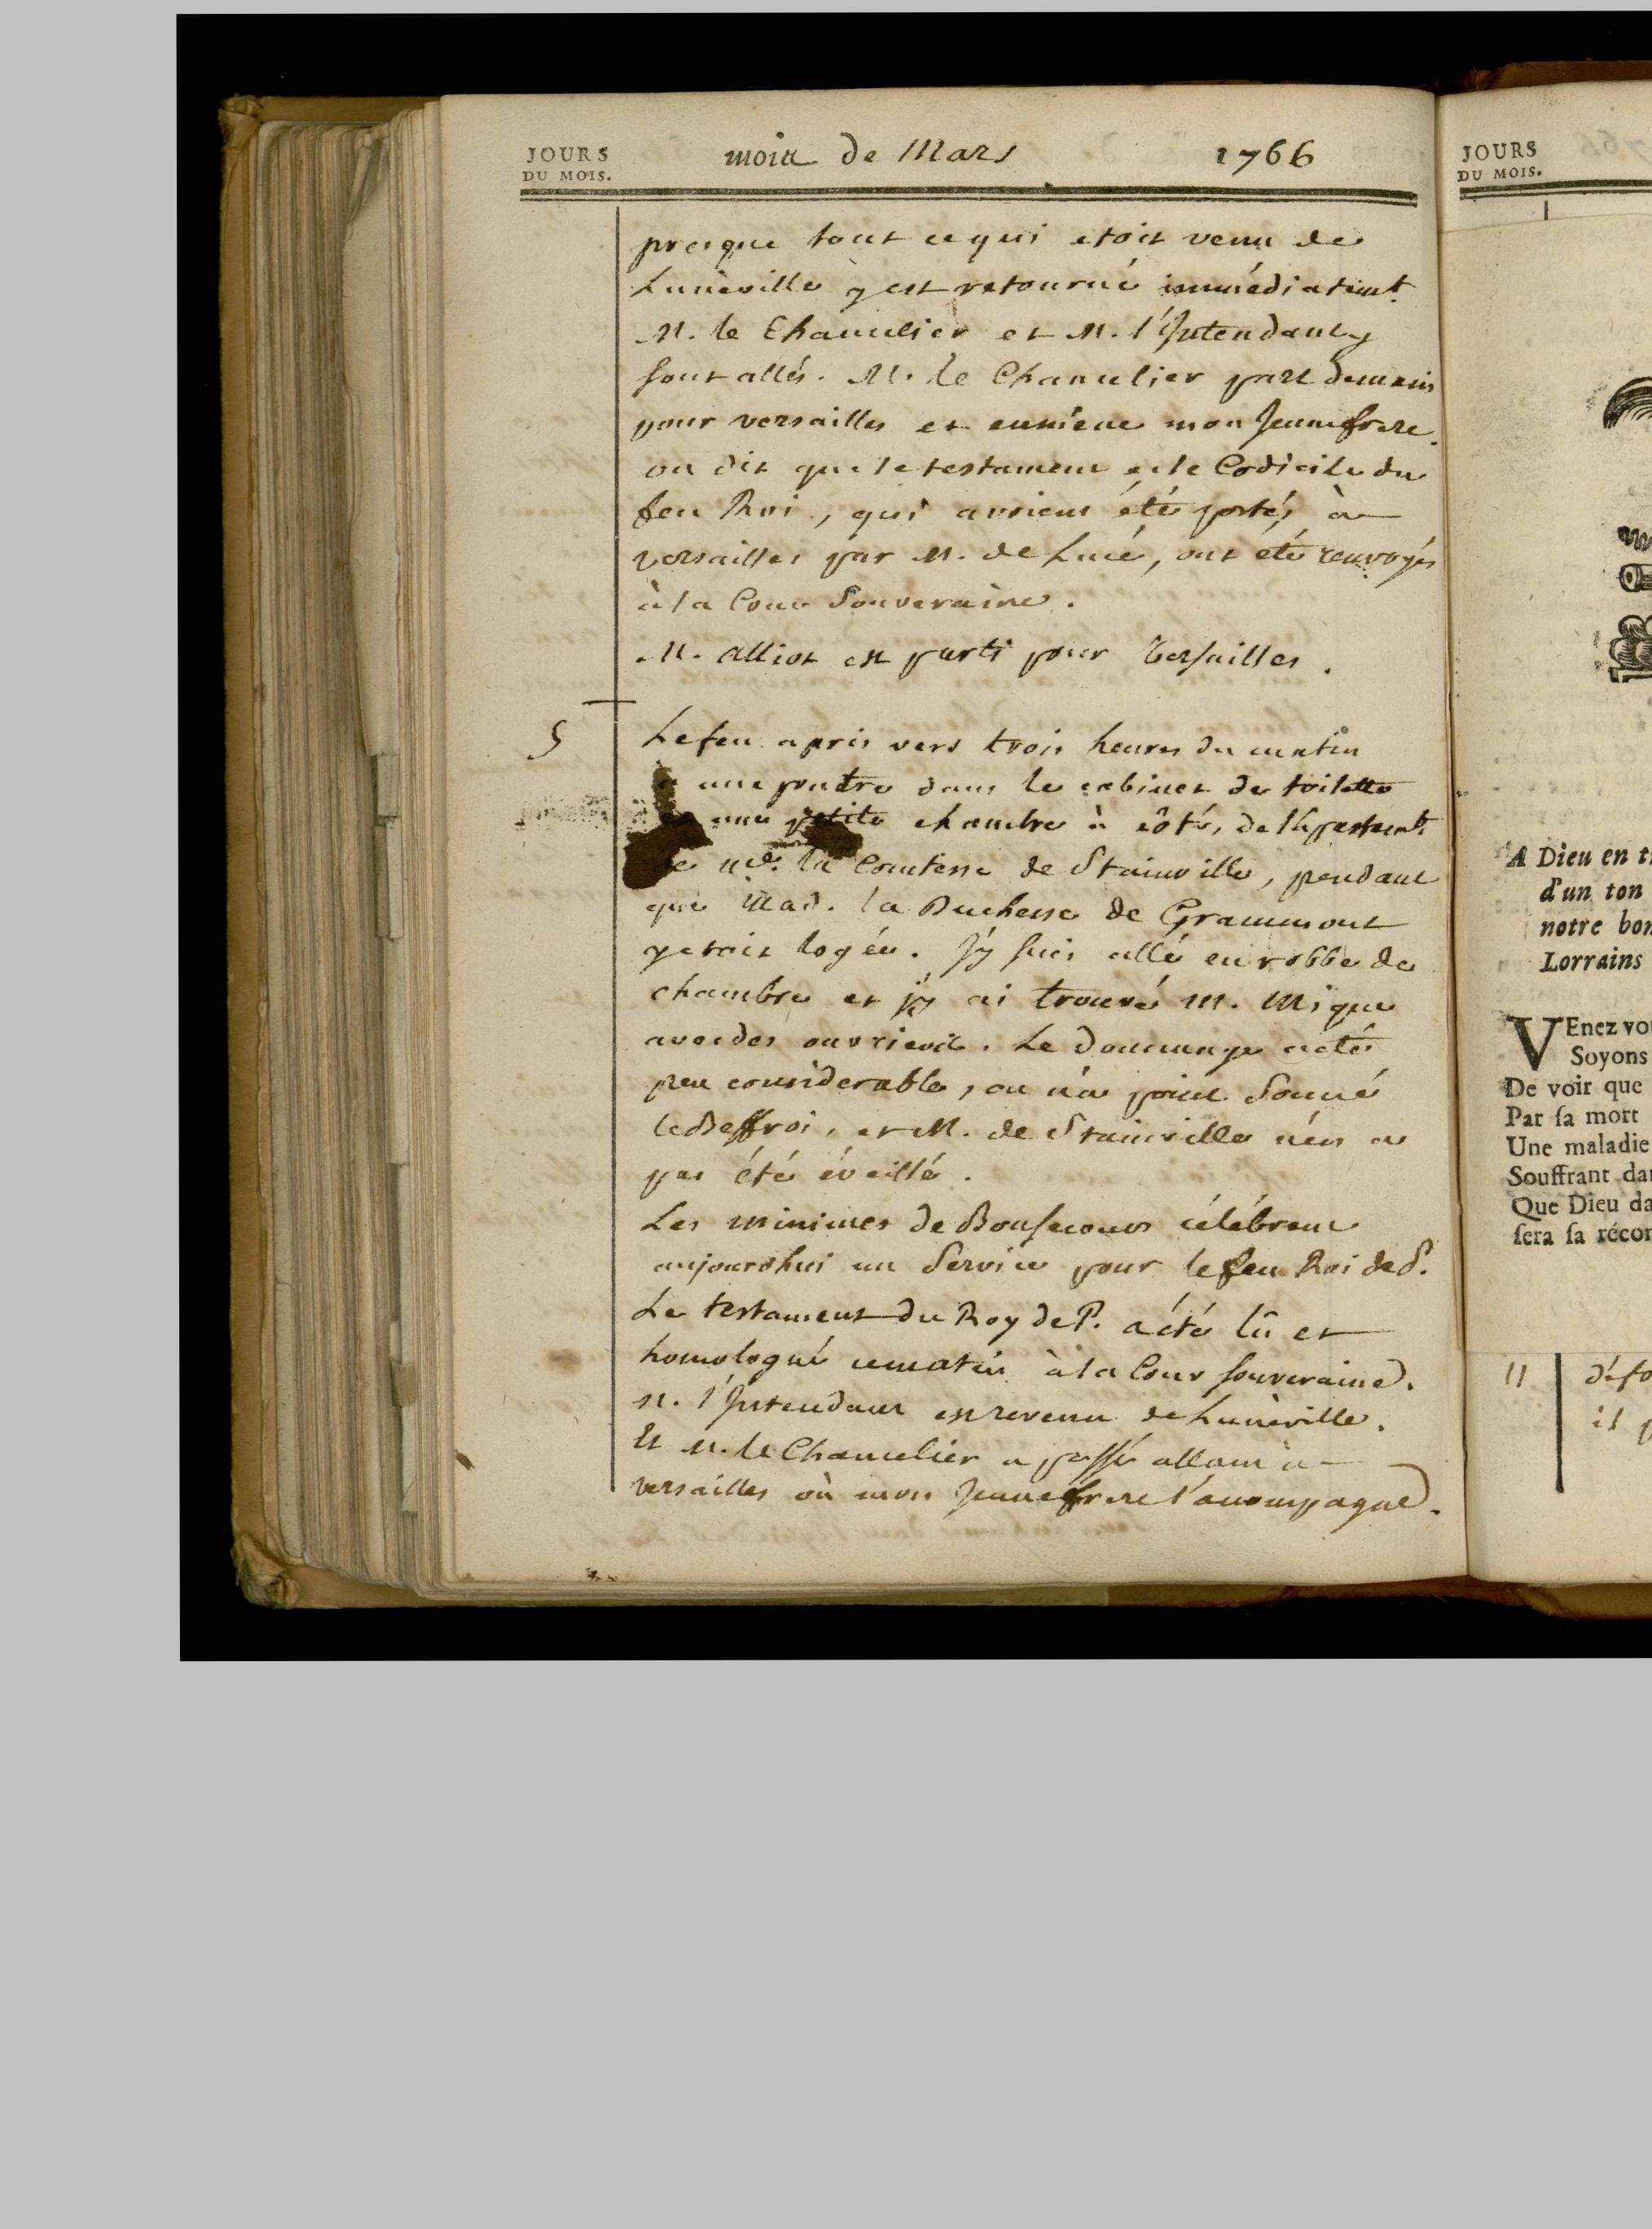 JOURS
DU MOIS.
mois de Mars 1766
presque tout ce qui etoit venu de
Lunéville y est retourné immédiatemt.
M. le Chancelier et M. l'Intendant y
sont allés. M. le Chancelier part demain
pour versailles et emméne mon Jeune frere.
on dit que le testament et le Codicile du
feu Roi, qui avoient été portés à
versailles par M. de Lucé, ont été renvoyés
à la Cour Souveraine.
M. alliot est parti pour Versailles.
5
Le feu a pris vers trois heures du matin
à une poutre dans le cabinet de toilette
une petite chambre à côté, de l'apartemt.
de Me. la Comtesse de Stainville, pendant
que Mad. la Duchesse de Grammont
y etoit logée. J'y suis allé en robbe de
chambre et j'y ai trouvé M. Mique
avec des ouvriers. Le dommage a été
peu considerable, on n'a point Sonné
le Beffroi, et M. de Stainville n'en a
pas été éveillé.
Les minimes de Bonsecours célébrent
aujourd'hui un Service pour le feu Roi de P.
Le testament du Roy de P. a été lû et
homologué ce matin à la Cour souveraine.
M. l'Intendant est revenu de Lunéville.
Et M. le Chancelier a passé allant à
versailles où mon Jeune frere l'acompagne.
JOURS
DU MOIS.
A Dieu en t
d'un ton
notre bon
Lorrains
VEnez vo
Soyons
De voir que
Par sa mort
Une maladie
Souffrant da
Que Dieu da
sera sa récom
11
il p